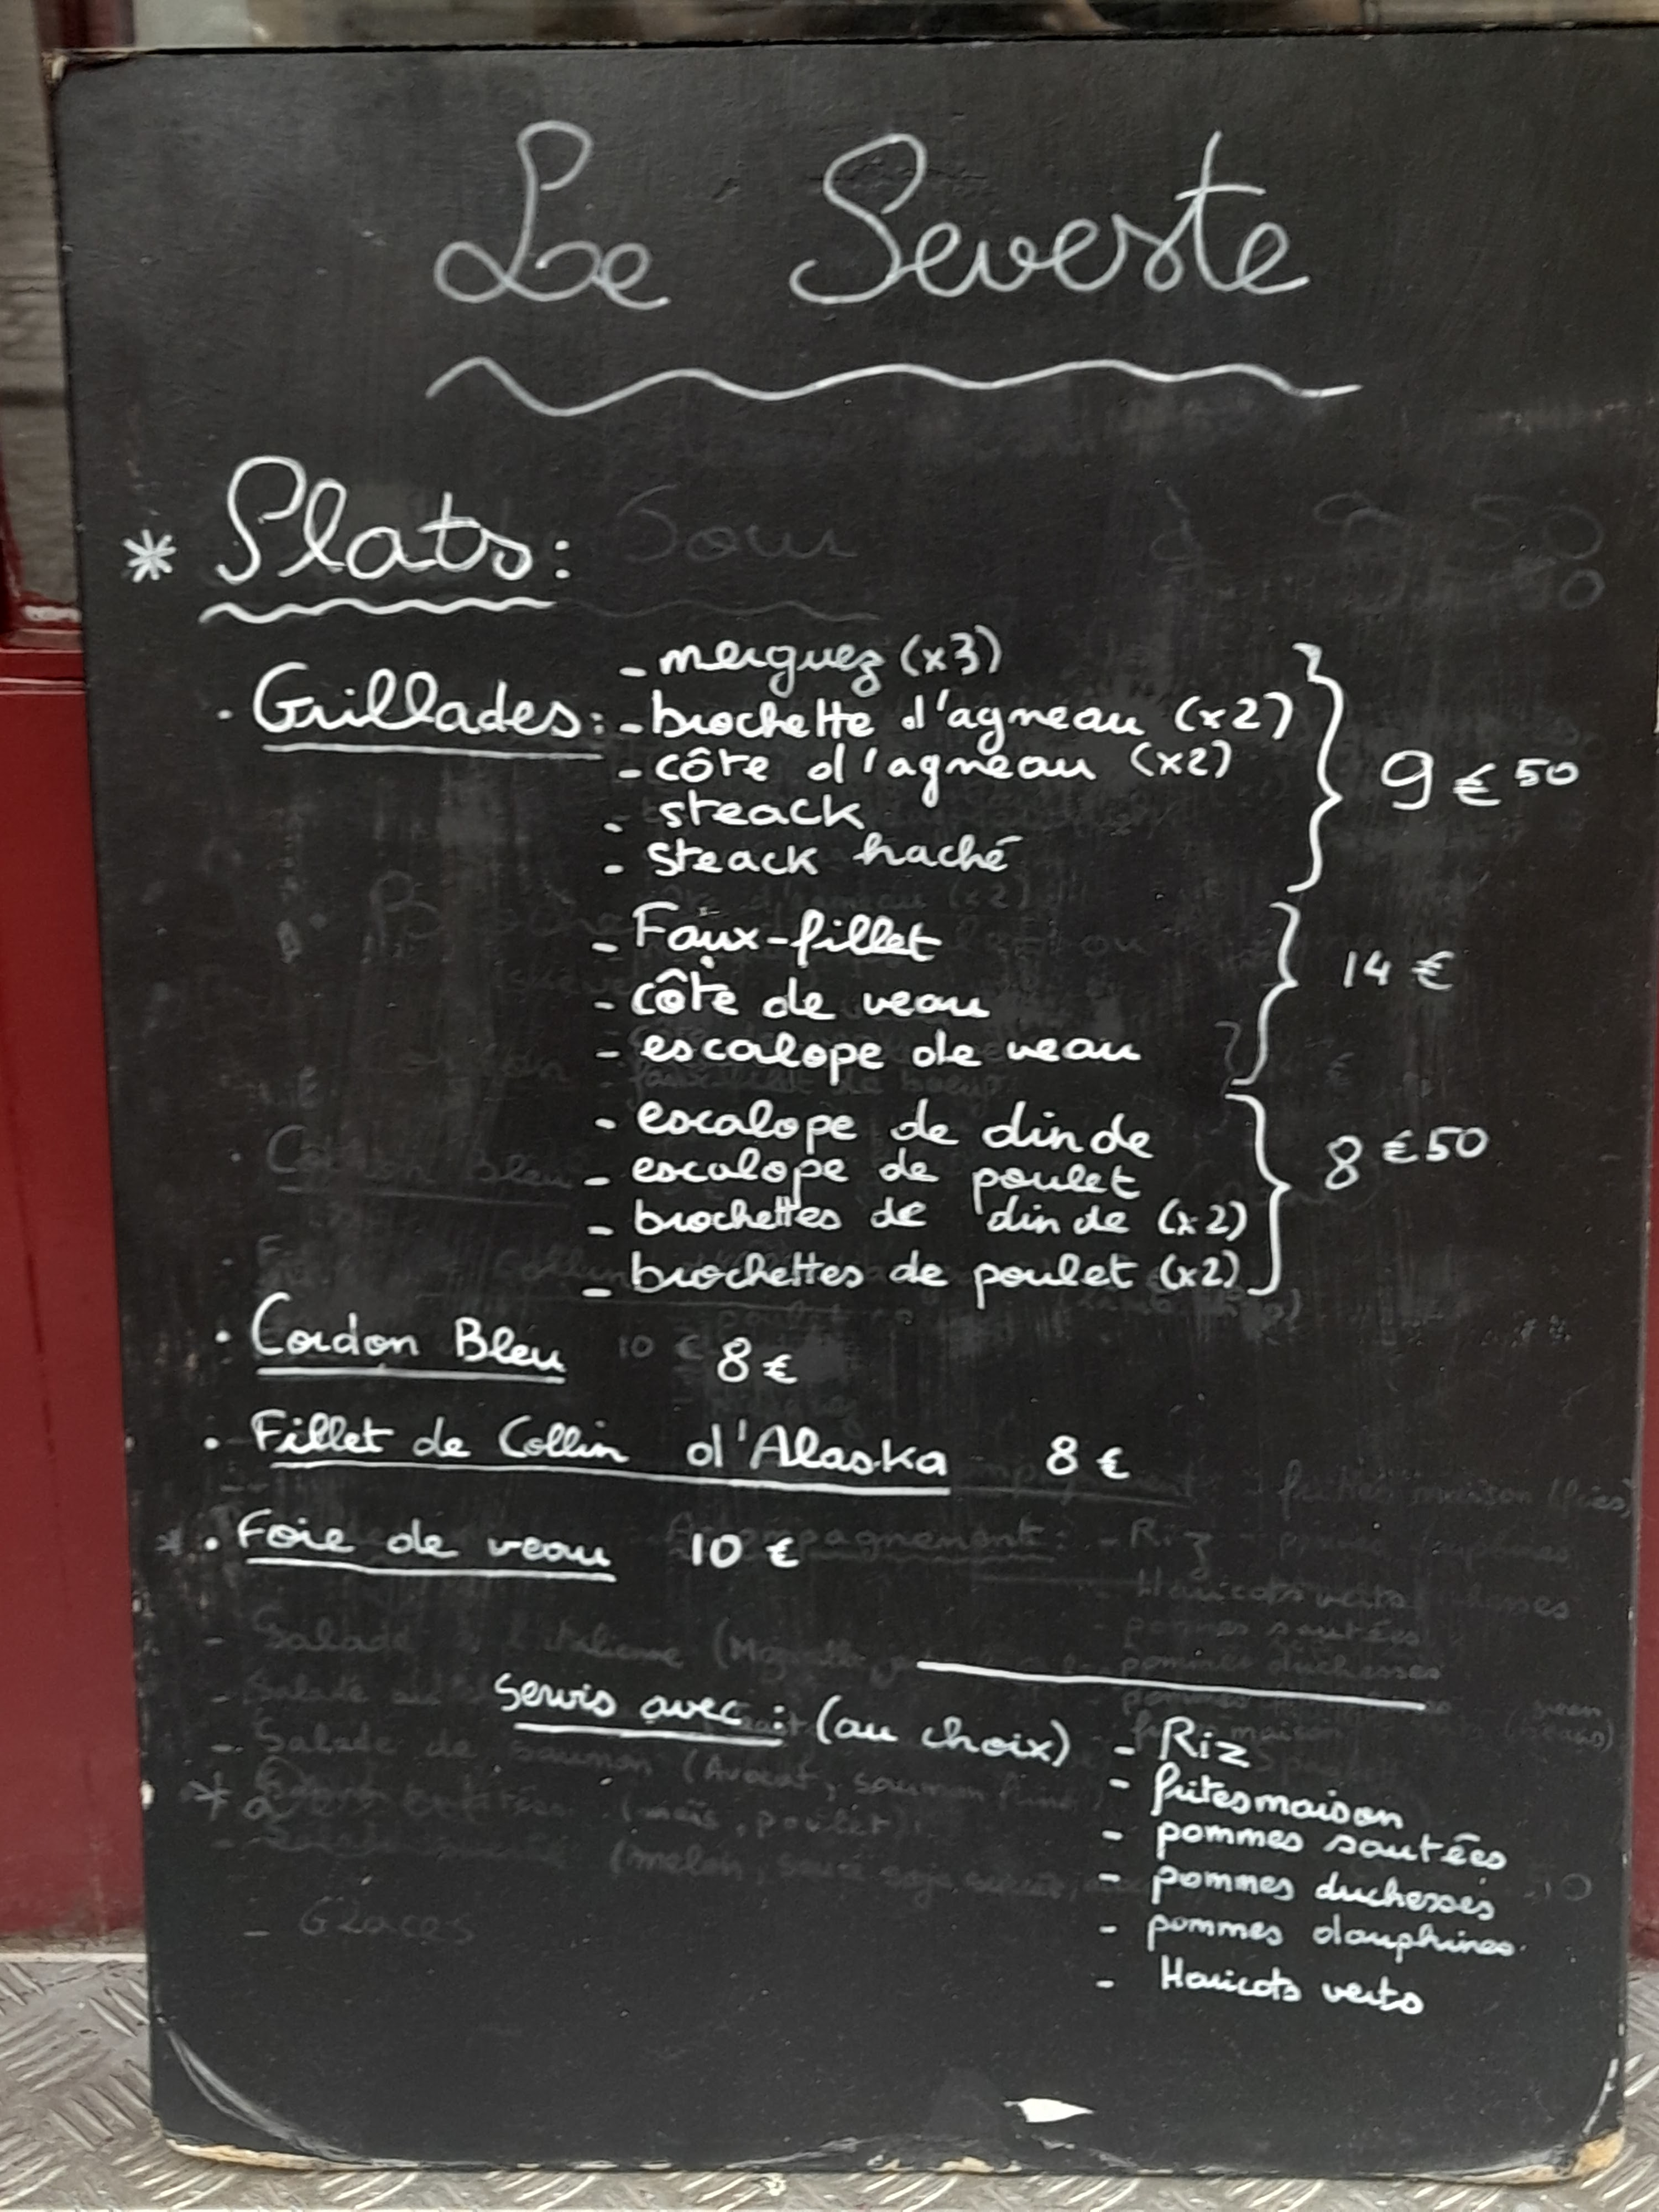 Le Seveste
* Plats:
. Grillades: - merguez (x3)
- brochette d'agneau (x2)
- côte d'agneau (x2)
- steack
- steack haché
9 € 50
- Faux-fillet
- côte de veau
- escalope de veau
14 €
- escalope de dinde
- escalope de poulet
- brochettes de dinde (x2)
- brochettes de poulet (x2)
8 € 50
. Cordon Bleu 8 €
. Fillet de Collin d'Alaska 8 €
. Foie de veau 10 €
Servis avec : (au choix) - Riz
- frites maison
- pommes sautées
- pommes duchesses
- pommes dauphines
- Haricots verts
- Glaces